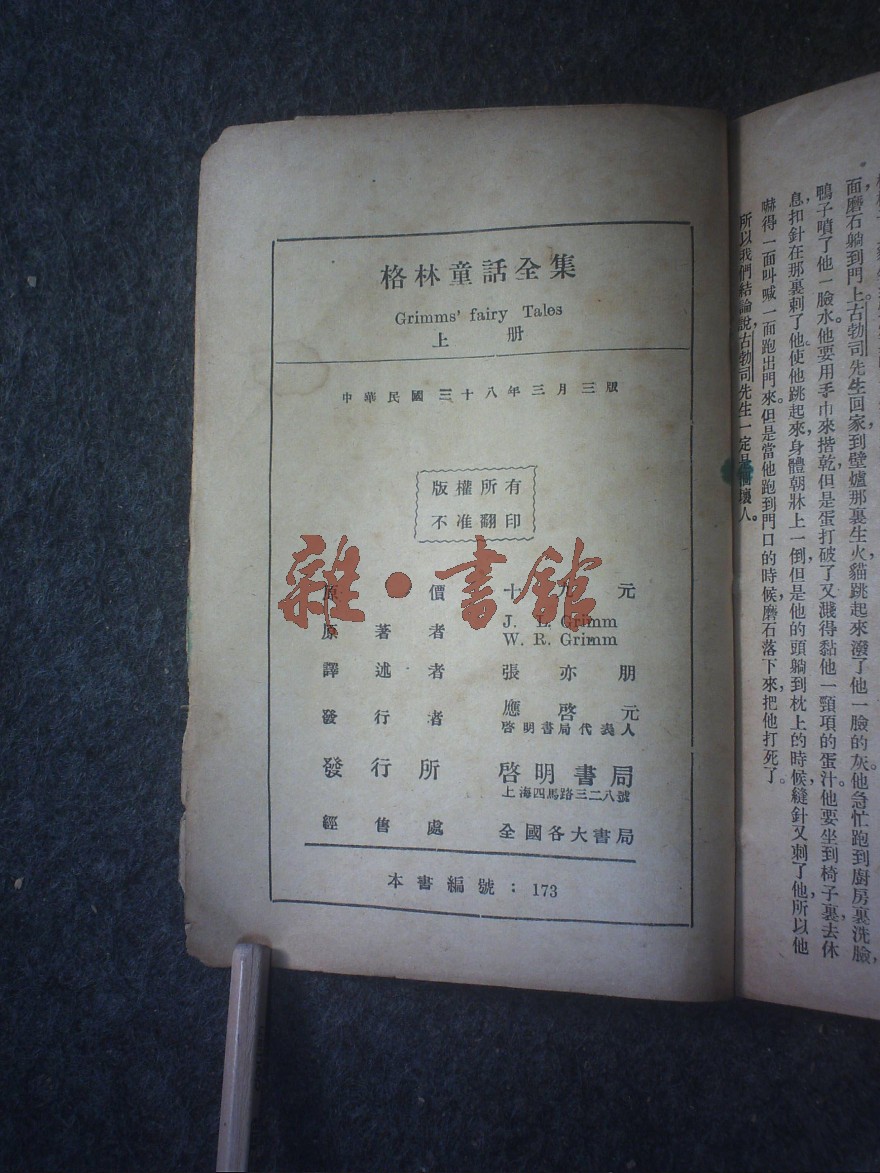 格林童話全集
Grimms' fairy Tales
上册
中華民國三十八年三月三版
版權所有
不准翻印
雜·書館
原價 十九元
原著者 J. L. Grimm
W. R. Grimm
譯述者 張亦朋
發行者 應啓元
啓明書局代表人
發行所 啓明書局
上海四馬路三二八號
經售處 全國各大書局
本書編號：173
面磨石躺到門上。古勃司先生回家，到壁爐那裏生火，貓跳起來潑了他一臉的灰。他急忙跑到厨房裏洗臉，
鴨子噴了他一臉水。他要用手巾來揩乾，但是蛋打破了，又濺得黏他一頸項的蛋汁。他要坐到椅子裏去休
息，扣針在那裏刺了他，使他跳起來，身體朝牀上一倒，但是他的頭躺到枕上的時候，縫針又刺了他，所以他
嚇得一面叫喊，一面跑出門來。但是當他跑到門口的時候，磨石落下來，把他打死了。
所以我們結論說，古勃司先生一定是個壞人。